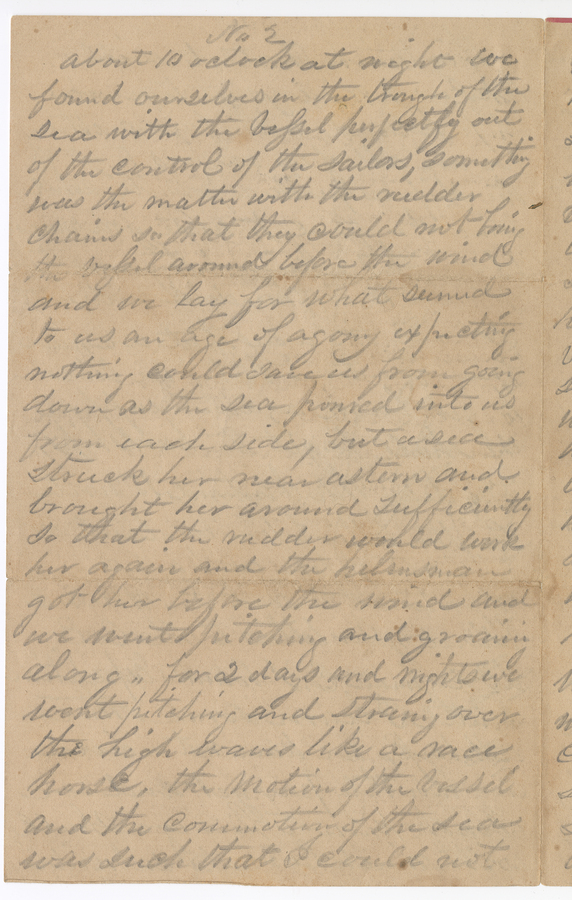 No 2
about 10 oclock at night we
found ourselves in the trough of the
sea with the vessel perfectly out
of the control of the sailors, somethig
was the matter with the rudder
chains so that they could not bring
the vessel around before the wind
and we lay for what seemed
to us an age of agony expecting
nothing could save us from going
down as the sea poured into us
from each side, but a sea
struck her near astern and
brought her around sufficiently
so that the rudder would work
her again and the helmsman
got her before the wind and
we went pitching and groaning
along,, for 2 days and nights we
went pitching and straing over
the high waves like a race
horse, the motion of the vessel
and the commotion of the sea
was such that I could not